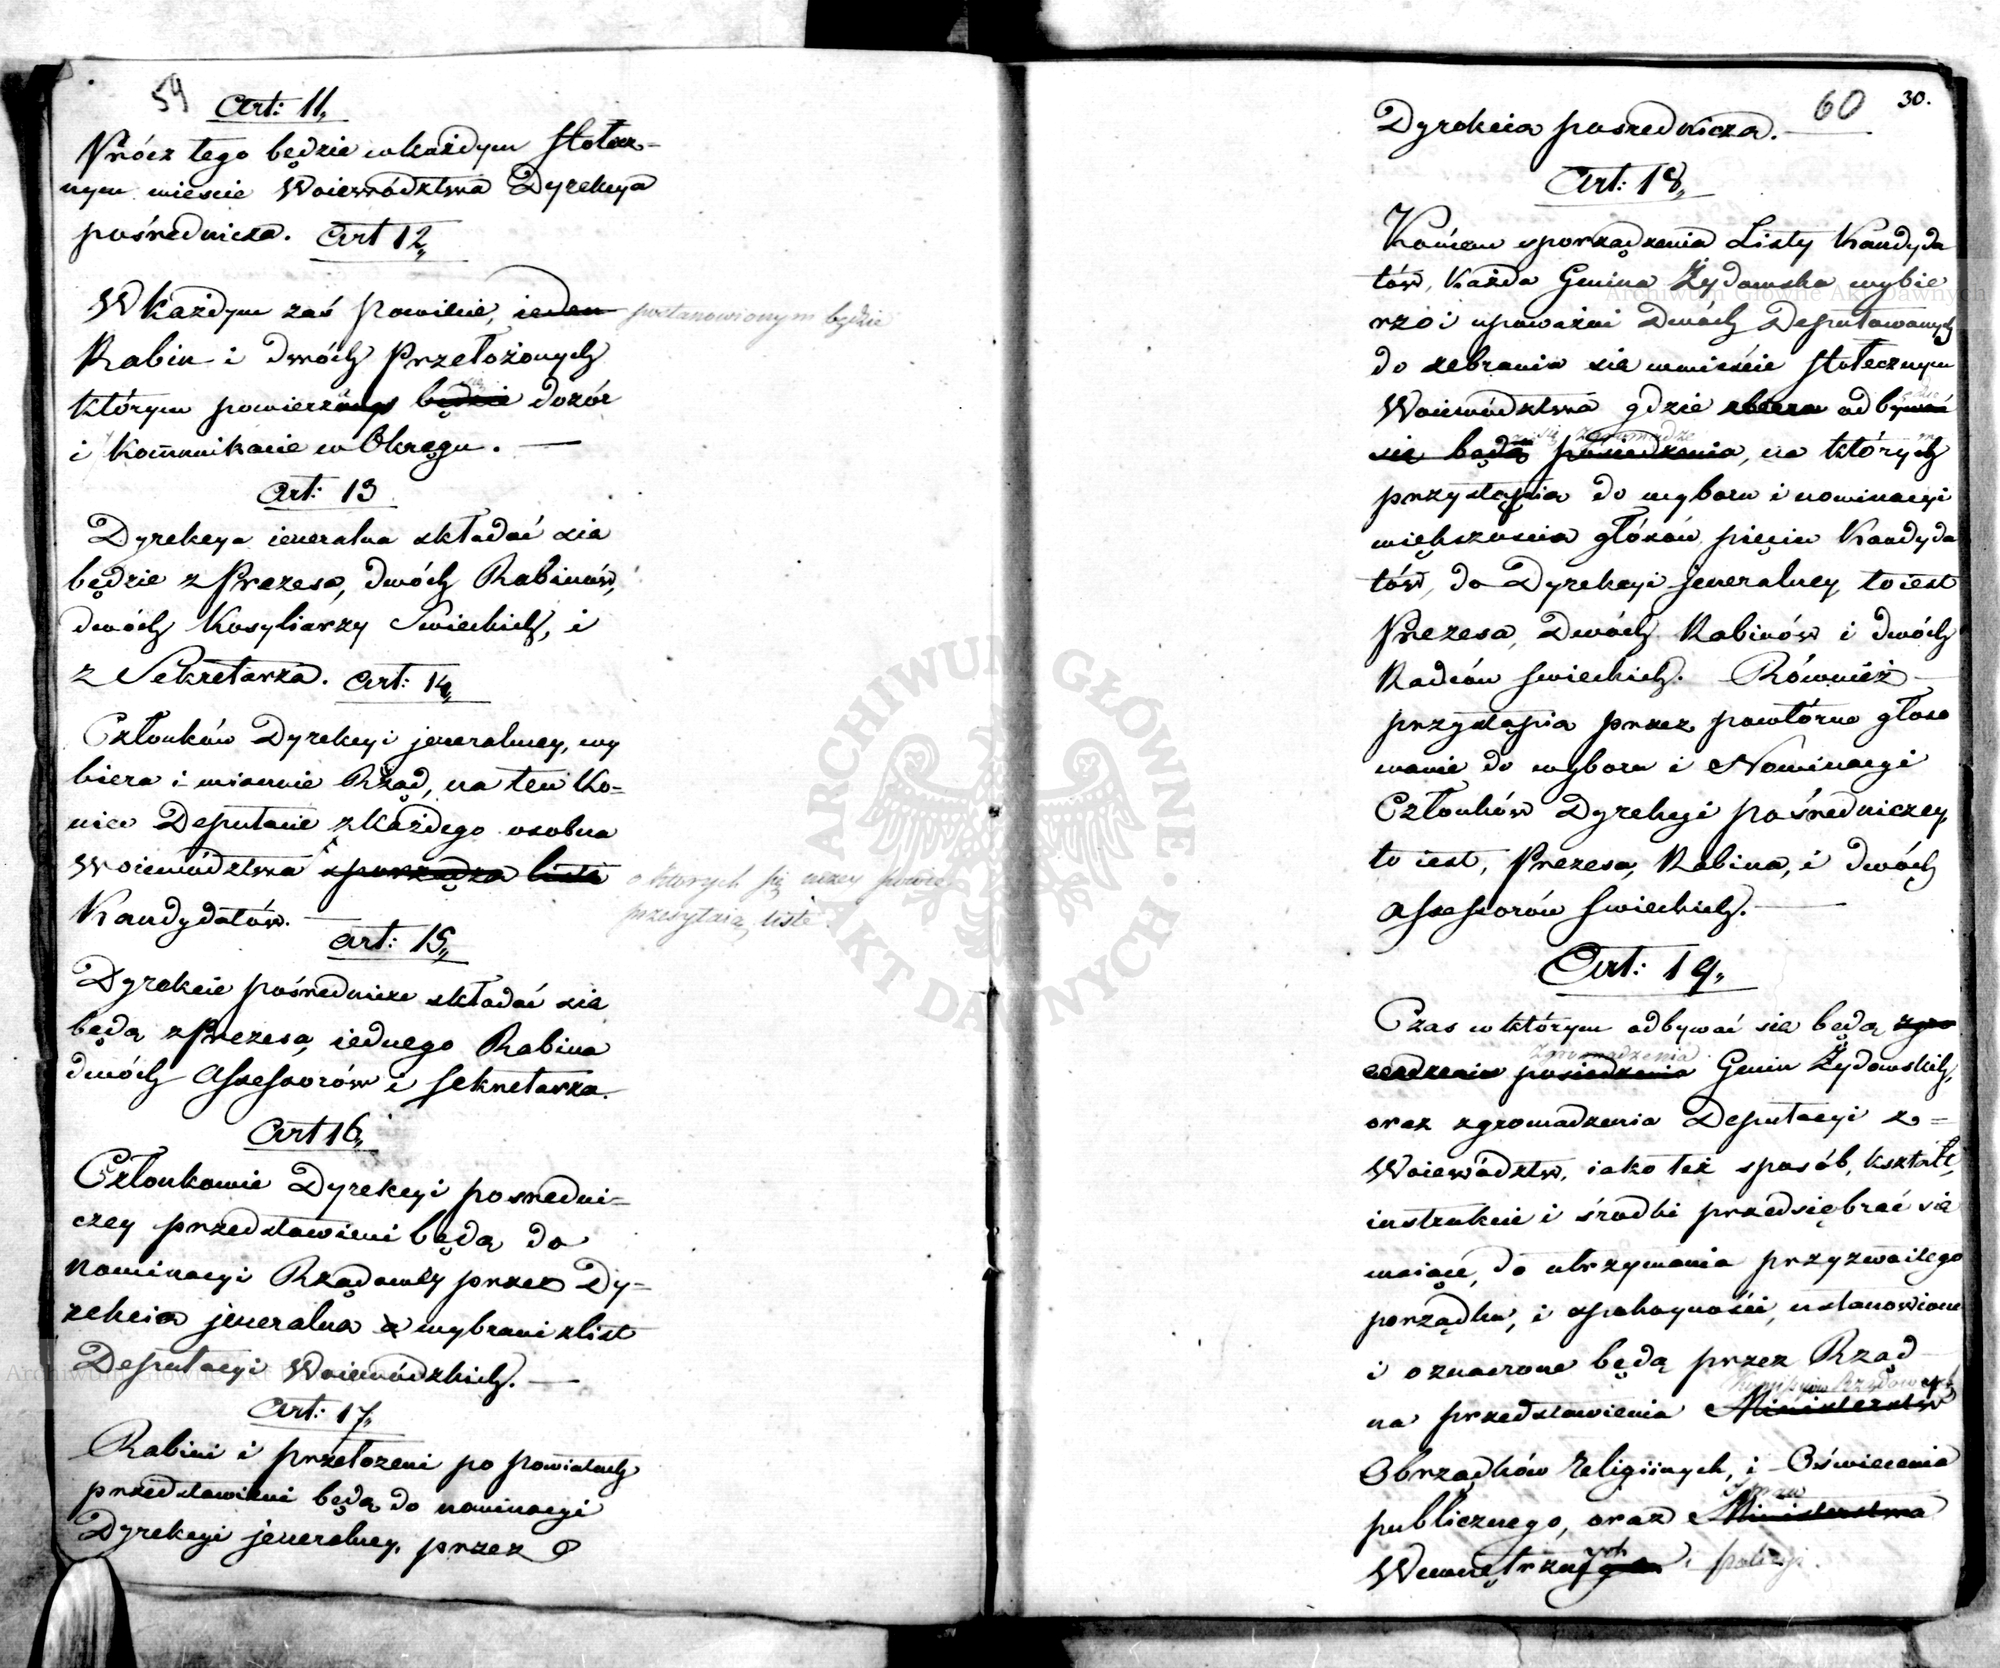 59
Art: 11,
Prócz tego będzie w każdym stołecz-
nym mieście Woiewództwa Dyrekcya
pośrednicza. Art 12,,
W każdym zaś Powiecie, ieden postanowionym będzie
Rabin i dwóch Przełożonych
którym powierzony będzie dozór
i kom̄unikacie w Okręgu. —
Art: 13
Dyrekcya ieneralna składać sie
będzie z Prezesa, dwóch Rabinów,
dwóch Kosyliarzy Swieckich, i
z Sekretarza. Art: 14,,
Członków Dyrekcyi jeneralney, wy
biera i mianuie Rząd, na ten ko=
niec Deputacie z każdego osobna
Woiewództwa sporządza liste o ktorych się niżey powie
Kandydatów. — przesyłaią liste.
Art: 15,,
Dyrekcie pośrednicze składać sie
będą z Prezesa, iednego Rabina
dwóch Assessorów i sekretarza.
Art 16,,
Członkowie Dyrekcyi posredni=
czey przedstawieni będą do
Nominacyi Rządowéy przez Dy=
rekcia jeneralna a wybrani z list
Deputacyi Woiewódzkich. —
Art: 17,,
Rabini i przełożeni po powiatach
przedstawieni będą do nominacyi
Dyrekcyi jeneralney, przez
60 30.
Dyrekcia posrednicza. —
Art: 18,,
Końcem sporządzenia Listy Kandyda
tów, każda Gmina Żydowska wybie
rze i upoważni Dwóch Deputowanych
do zebrania sie w mieście stołecznym
Woiewództwa gdzie odbywać
się zgromadze
sie będą posiedzenia, na których
przystąpia do wyboru i nominacyi
większoscia głósów pięciu Kandyda
tów, do Dyrekcyi jeneralney, to iest
Prezesa, Dwóch Rabinów i dwóch
Radców swieckich. Również —
przystąpia przez powtórne głoso
wanie do wyboru i Nominacyi
Członków Dyrekcyi pośredniczey,
to iest, Prezesa, Rabina, i dwóch
Assessorów swieckich. —
Art: 19,,
Czas w którym odbywać sie będą zgro
zgromadzenia
madzenia posiedzenia Gmin Żydowskich,
oraz zgromadzenia Deputacyi z=
Woiewództw, iako też sposób, kształt,
instrukcie i środki przedsiębrać sie
maiące, do utrzymania przyzwoitego
porządku, i spokoyności, ustanowione
i oznaczone będą przez Rząd
Kom̄issyiow Rządowych
na przedstawienia Ministerstw
Obrządków religiinych, i Oświecenia
publicznego, oraz Ministerstwa
Wewnętrznych i policyi.
ARCHIWUM GŁÓWNE AKT DAWNYCH
Archiwum Główne Akt Dawnych